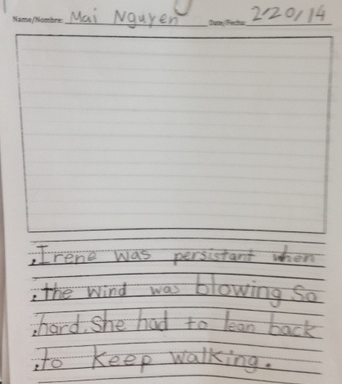 Name/Nombre: Mai Nguyen Date/Fecha: 2/20/14
Irene was persistant when
the wind was blowing so
hard. She had to lean back
to keep walking.